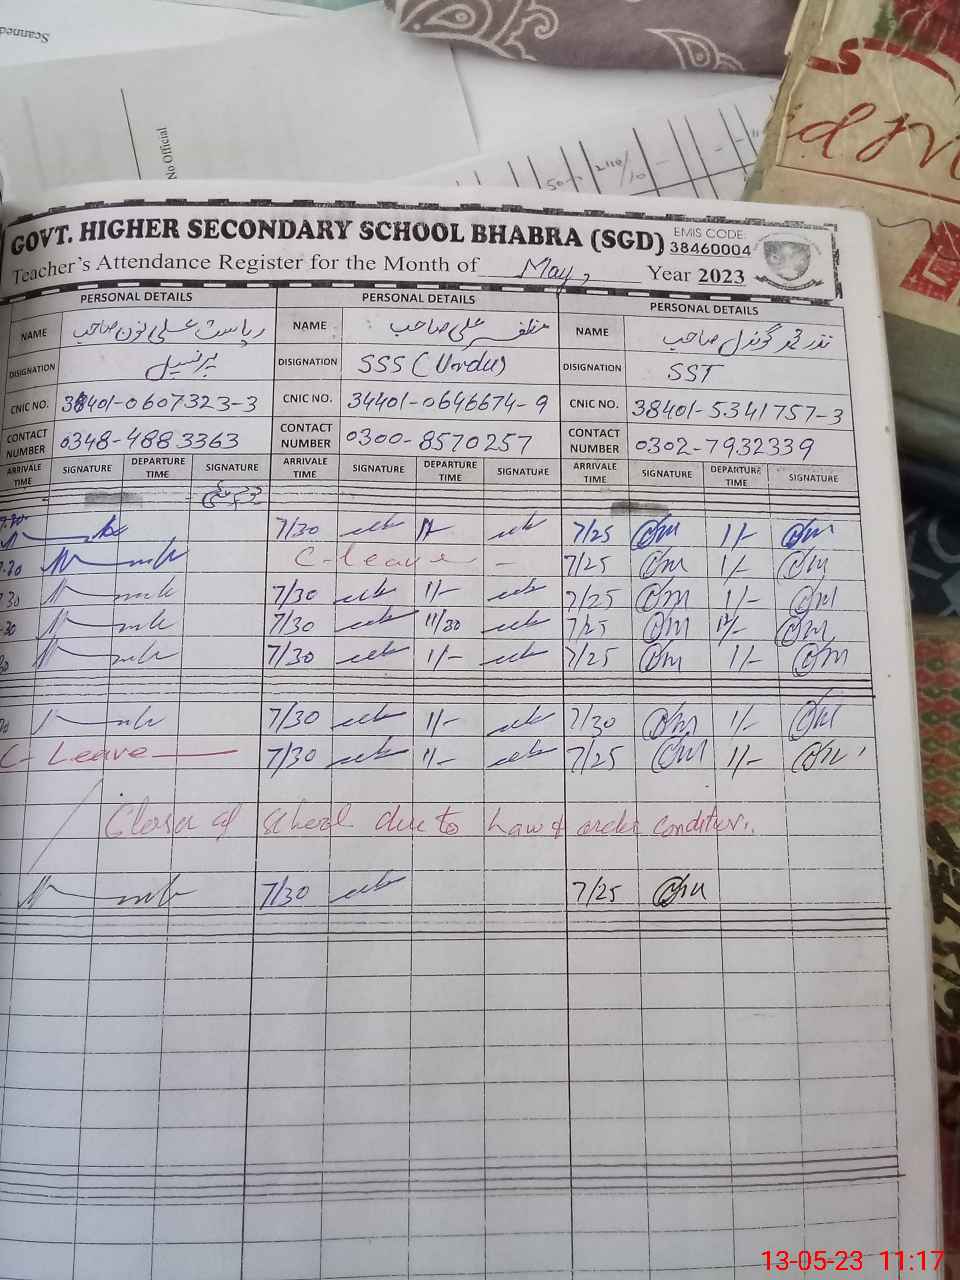 Scanned
No Official
50
2110/10
GOVT. HIGHER SECONDARY SCHOOL BHABRA (SGD) EMIS CODE: 38460004
Teacher's Attendance Register for the Month of May, Year 2023
PERSONAL DETAILS PERSONAL DETAILS PERSONAL DETAILS
NAME ریاست علی نون صاحب NAME مظفر علی صاحب NAME نذر محمد گوندل صاحب
DISIGNATION پرنسپل DISIGNATION SSS (Urdu) DISIGNATION SST
CNIC NO. 38401-0607323-3 CNIC NO. 34401-0646674-9 CNIC NO. 38401-5341757-3
CONTACT NUMBER 0348-4883363 CONTACT NUMBER 0300-8570257 CONTACT NUMBER 0302-7932339
ARRIVALE TIME SIGNATURE DEPARTURE TIME SIGNATURE ARRIVALE TIME SIGNATURE DEPARTURE TIME SIGNATURE ARRIVALE TIME SIGNATURE DEPARTURE TIME SIGNATURE
7/30 1/- 7/25 1/-
C-leave - 7/25 1/-
7/30 1/- 7/25 1/-
7/30 11/30 7/25
7/30 1/- 7/25 1/-
7/30 1/- 7/30 1/-
C- Leave 7/30 1/- 7/25 1/-
school due to Law & order condition.
7/30 7/25
13-05-23 11:17